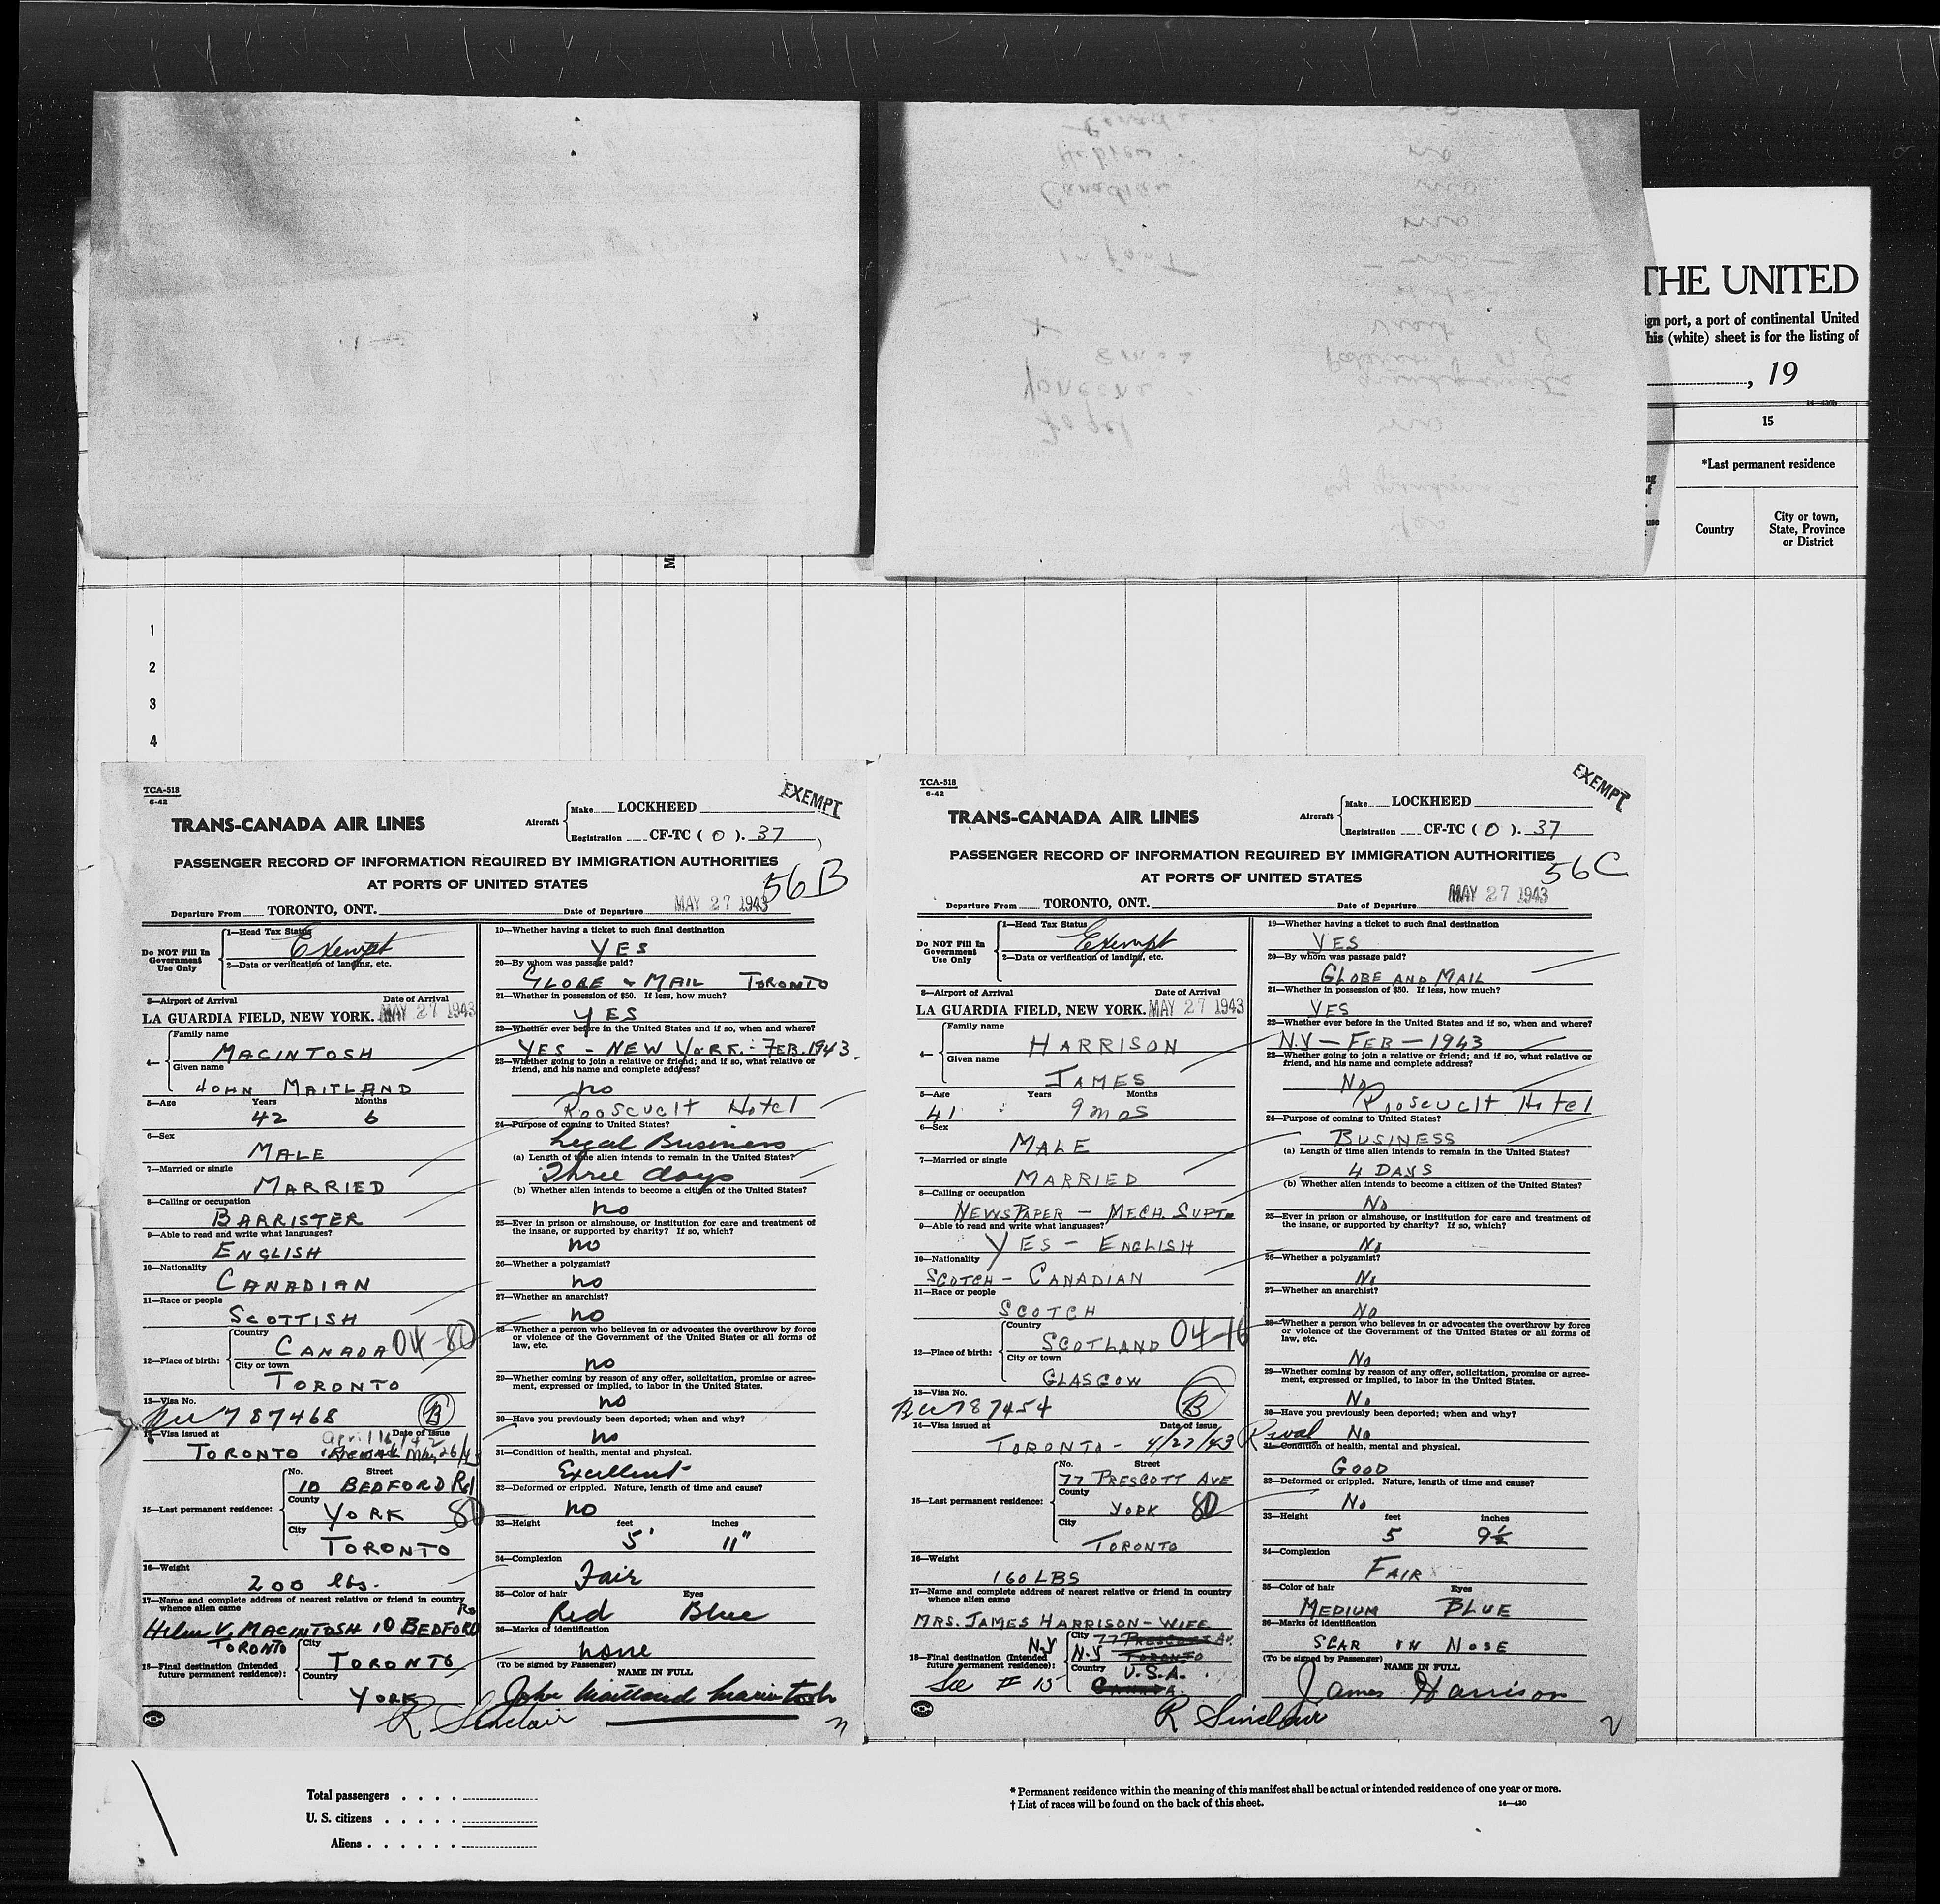 THE UNITED
ign port, a port of continental United
his (white) sheet is for the listing of
, 19
15
*Last permanent residence
Country
City or town,
State, Province
or District
1
2
3
4
TCA-518
6-42
EXEMPT
TRANS-CANADA AIR LINES
Aircraft
Make LOCKHEED
Registration CF-TC ( O ). 37
PASSENGER RECORD OF INFORMATION REQUIRED BY IMMIGRATION AUTHORITIES
AT PORTS OF UNITED STATES
56B
Departure From TORONTO, ONT. Date of Departure MAY 27 1943
Do NOT Fill In
Government
Use Only
1—Head Tax Status
Exempt
2—Data or verification of landing, etc.
3—Airport of Arrival Date of Arrival
LA GUARDIA FIELD, NEW YORK. MAY 27 1943
4— Family name
MACINTOSH
Given name
JOHN MAITLAND
5—Age Years Months
42 6
6—Sex
MALE
7—Married or single
MARRIED
8—Calling or occupation
BARRISTER
9—Able to read and write what languages?
ENGLISH
10—Nationality
CANADIAN
11—Race or people
SCOTTISH
12—Place of birth:
Country
CANADA 04-80
City or town
TORONTO
13—Visa No.
787468 B
14—Visa issued at Date of Issue
April 16/42
TORONTO May 26/43
15—Last permanent residence:
No. Street
10 BEDFORD Rd
County
YORK 80
City
TORONTO
16—Weight
200 lbs.
17—Name and complete address of nearest relative or friend in country
whence alien came
Helen V. MACINTOSH 10 BEDFORD Rd
TORONTO
18—Final destination (Intended
future permanent residence):
City
TORONTO
Country
YORK
R Sinclair
19—Whether having a ticket to such final destination
YES
20—By whom was passage paid?
GLOBE & MAIL TORONTO
21—Whether in possession of $50. If less, how much?
YES
22—Whether ever before in the United States and if so, when and where?
YES - NEW YORK - FEB. 1943.
23—Whether going to join a relative or friend; and if so, what relative or
friend, and his name and complete address?
no
Roosevelt Hotel
24—Purpose of coming to United States?
Legal Business
(a) Length of time alien intends to remain in the United States?
Three days
(b) Whether alien intends to become a citizen of the United States?
no
25—Ever in prison or almshouse, or institution for care and treatment of
the insane, or supported by charity? If so, which?
no
26—Whether a polygamist?
no
27—Whether an anarchist?
no
28—Whether a person who believes in or advocates the overthrow by force
or violence of the Government of the United States or all forms of
law, etc.
no
29—Whether coming by reason of any offer, solicitation, promise or agree-
ment, expressed or implied, to labor in the United States.
no
30—Have you previously been deported; when and why?
no
31—Condition of health, mental and physical.
Excellent
32—Deformed or crippled. Nature, length of time and cause?
no
33—Height feet inches
5' 11"
34—Complexion
Fair
35—Color of hair Eyes
Red Blue
36—Marks of identification
none
(To be signed by Passenger) NAME IN FULL
John Maitland Macintosh
TCA-518
6-42
EXEMPT
TRANS-CANADA AIR LINES
Aircraft
Make LOCKHEED
Registration CF-TC ( O ). 37
PASSENGER RECORD OF INFORMATION REQUIRED BY IMMIGRATION AUTHORITIES
AT PORTS OF UNITED STATES
56C
Departure From TORONTO, ONT. Date of Departure MAY 27 1943
Do NOT Fill In
Government
Use Only
1—Head Tax Status
Exempt
2—Data or verification of landing, etc.
3—Airport of Arrival Date of Arrival
LA GUARDIA FIELD, NEW YORK. MAY 27 1943
4— Family name
HARRISON
Given name
JAMES
5—Age Years Months
41 9 mos
6—Sex
MALE
7—Married or single
MARRIED
8—Calling or occupation
NEWSPAPER - MECH. SUPT.
9—Able to read and write what languages?
YES - ENGLISH
10—Nationality
SCOTCH - CANADIAN
11—Race or people
SCOTCH
12—Place of birth:
Country
SCOTLAND 04-16
City or town
GLASGOW
13—Visa No.
787454 B
14—Visa issued at Date of Issue
TORONTO - 4/27/43
15—Last permanent residence:
No. Street
77 PRESCOTT AVE
County
YORK 80
City
TORONTO
16—Weight
160 LBS
17—Name and complete address of nearest relative or friend in country
whence alien came
MRS. JAMES HARRISON - WIFE
18—Final destination (Intended
future permanent residence):
See # 15
City 77 PRESCOTT Av.
N.Y
N.Y TORONTO
Country U.S.A.
CANADA.
R Sinclair
19—Whether having a ticket to such final destination
YES
20—By whom was passage paid?
GLOBE AND MAIL
21—Whether in possession of $50. If less, how much?
YES
22—Whether ever before in the United States and if so, when and where?
N.Y - FEB - 1943
23—Whether going to join a relative or friend; and if so, what relative or
friend, and his name and complete address?
No
Roosevelt Hotel
24—Purpose of coming to United States?
BUSINESS
(a) Length of time alien intends to remain in the United States?
4 DAYS
(b) Whether alien intends to become a citizen of the United States?
No
25—Ever in prison or almshouse, or institution for care and treatment of
the insane, or supported by charity? If so, which?
No
26—Whether a polygamist?
No
27—Whether an anarchist?
No
28—Whether a person who believes in or advocates the overthrow by force
or violence of the Government of the United States or all forms of
law, etc.
No
29—Whether coming by reason of any offer, solicitation, promise or agree-
ment, expressed or implied, to labor in the United States.
No
30—Have you previously been deported; when and why?
No
31—Condition of health, mental and physical.
GOOD
32—Deformed or crippled. Nature, length of time and cause?
No
33—Height feet inches
5 9½
34—Complexion
FAIR
35—Color of hair Eyes
MEDIUM BLUE
36—Marks of identification
SCAR ON NOSE
(To be signed by Passenger) NAME IN FULL
James Harrison
2
Total passengers . . . .
U. S. citizens . . . . .
Aliens . . . . . .
* Permanent residence within the meaning of this manifest shall be actual or intended residence of one year or more.
† List of races will be found on the back of this sheet. 14—420